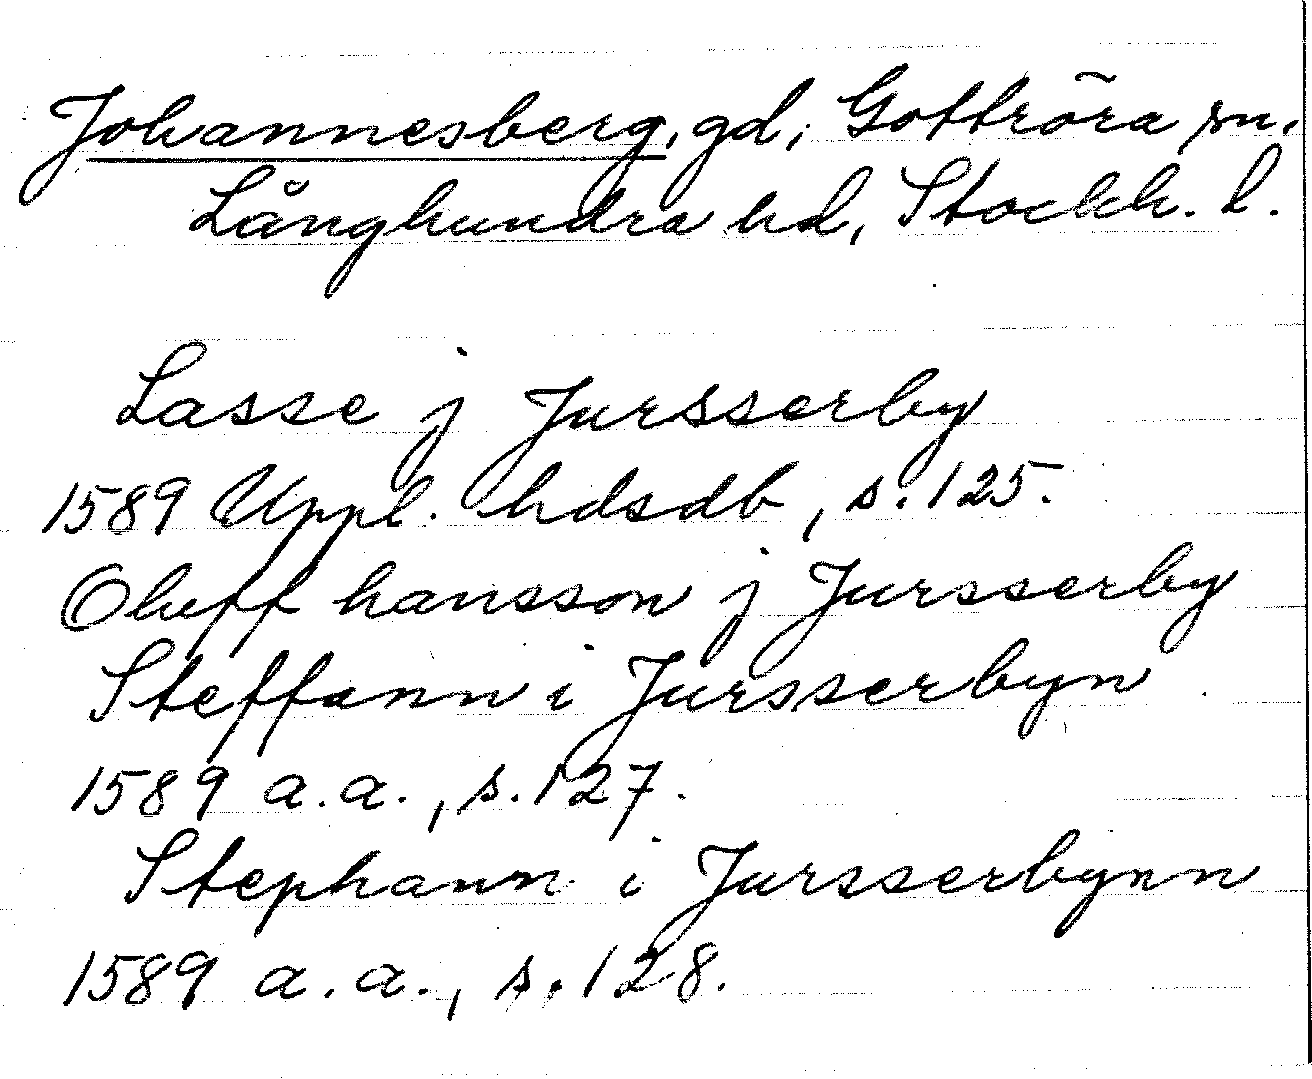 Johannesberg, gd, Gottröra sn,
Långhundra hd, Stockh. l.
Lasse j Jursserby
1589 Uppl. hdsdb, s. 125.
Oluff hansson j Jursserby
Steffann i Jursserbyn
1589 a.a., s. 127.
Stephann i Jursserbynn
1589 a.a., s. 128.